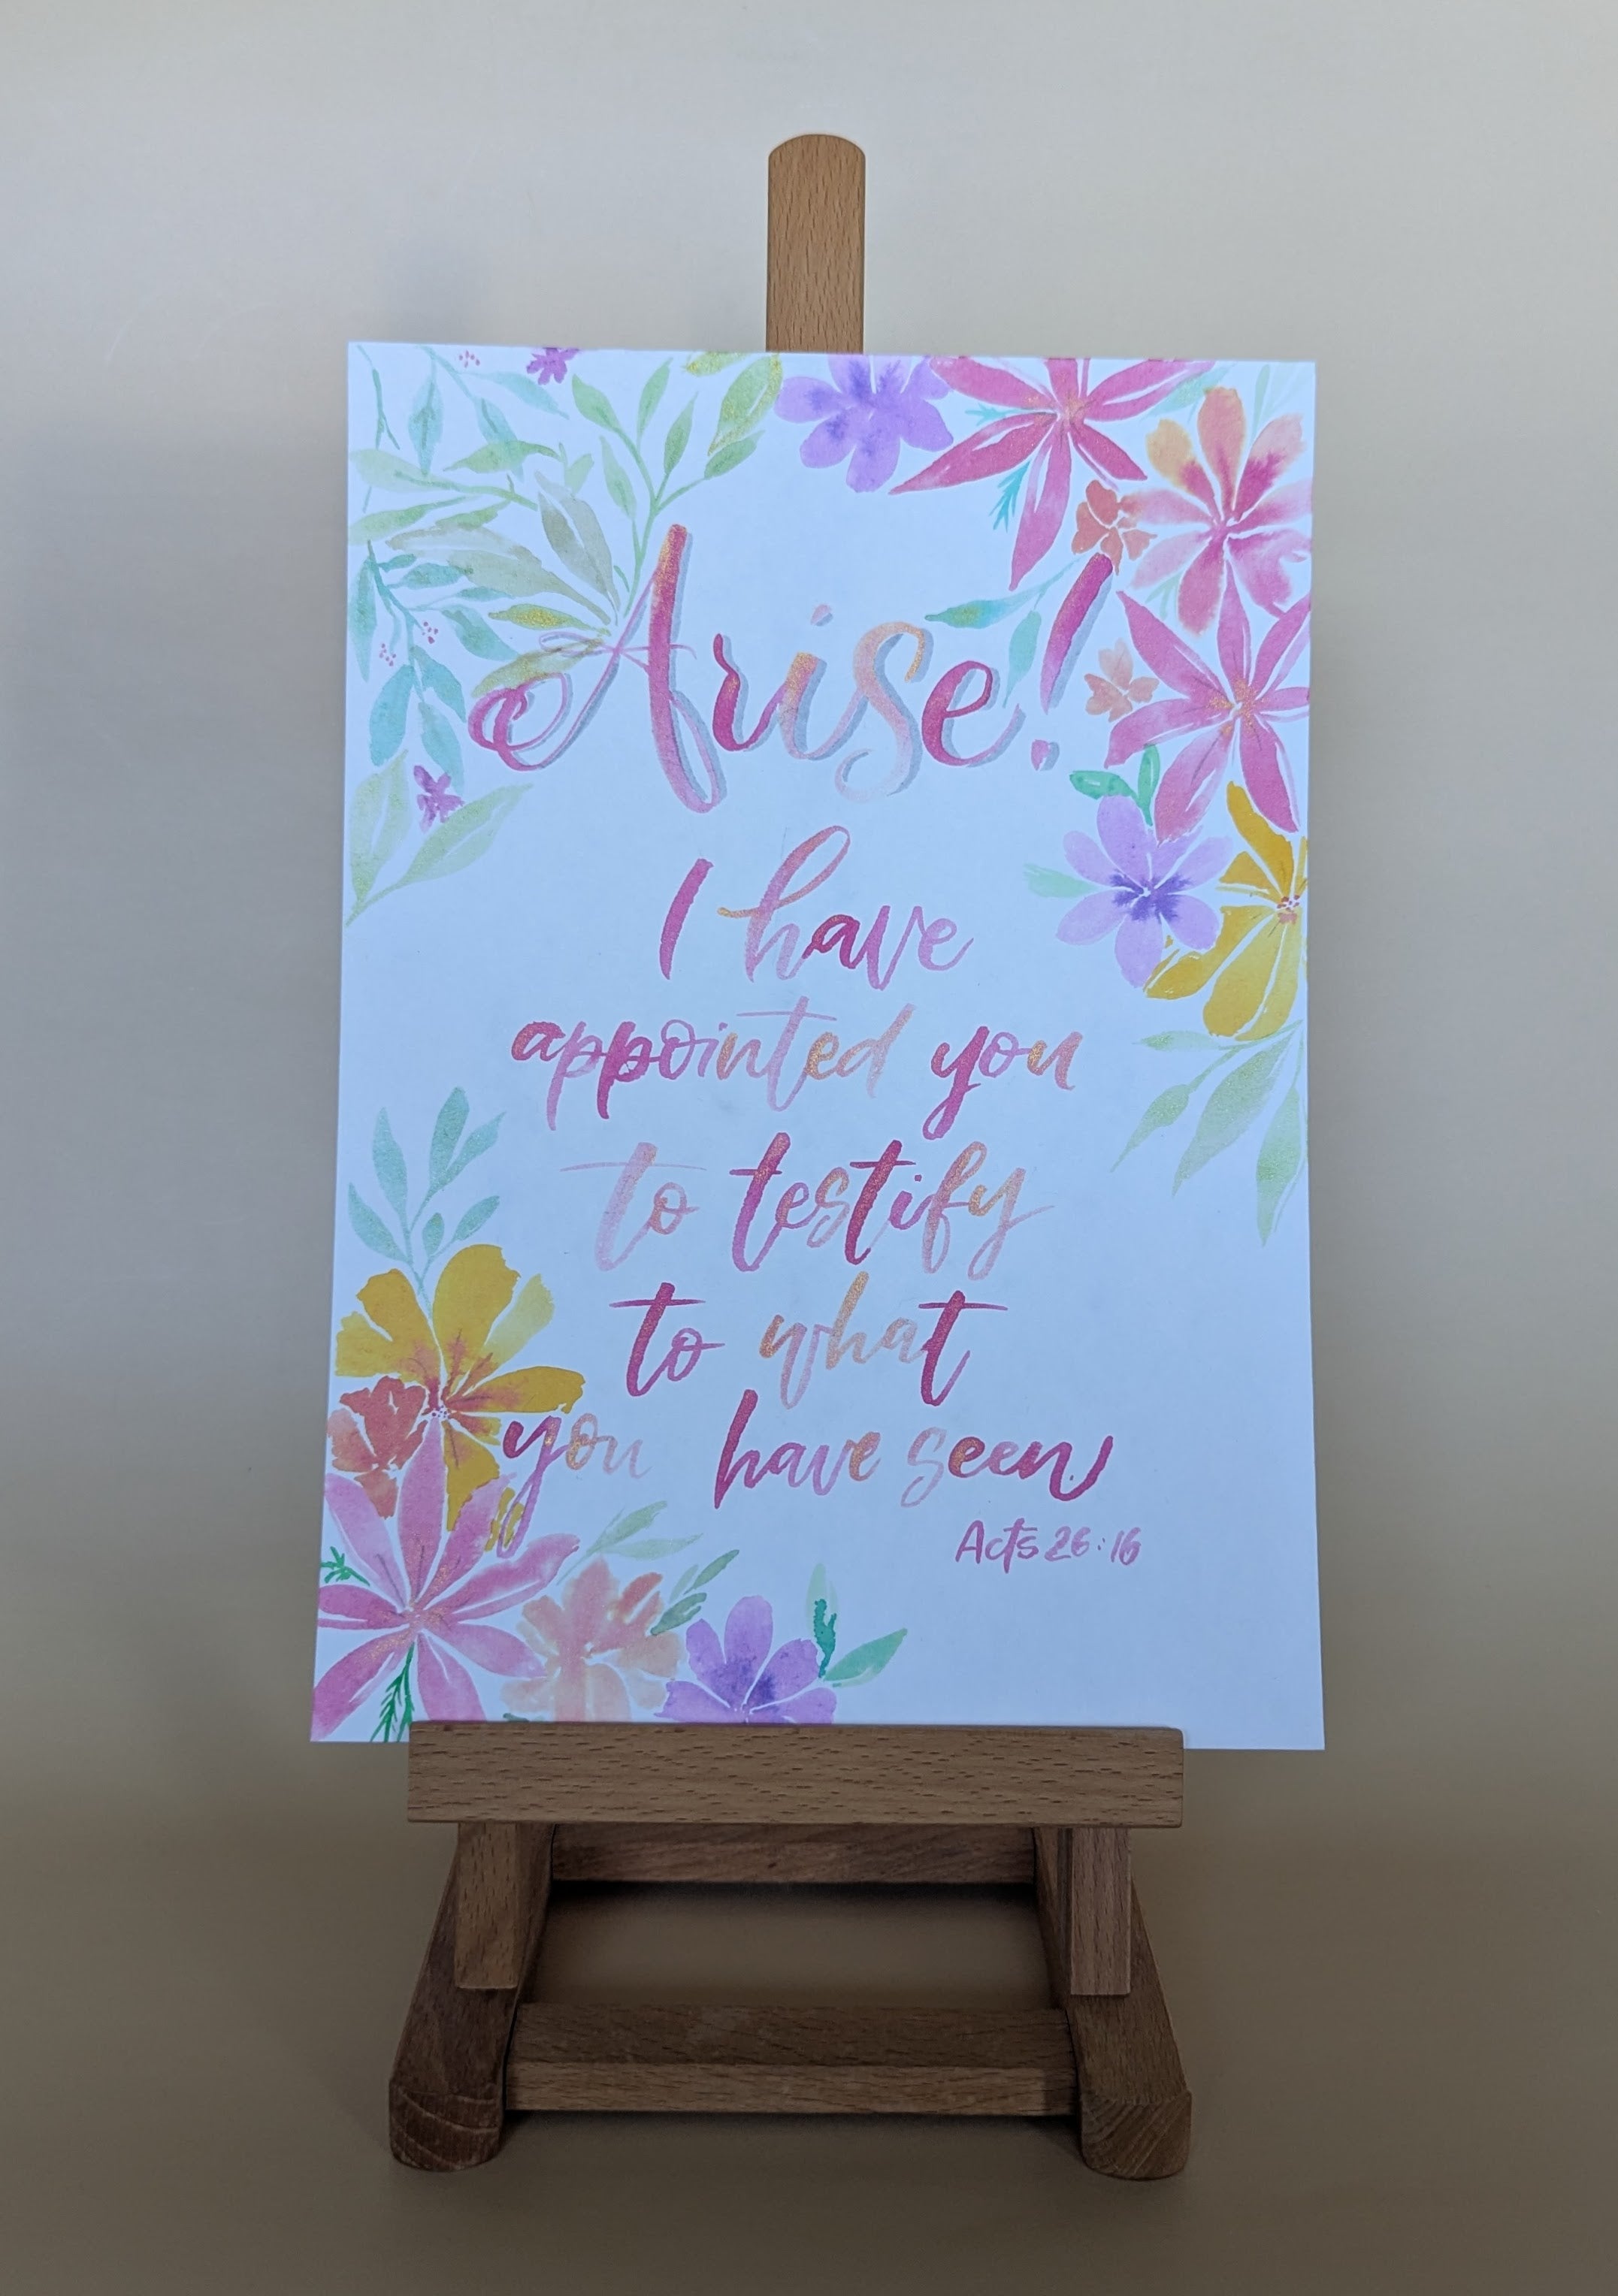 Arise!
I have
appointed you
to testify
to what
you have seen
Acts 26:16